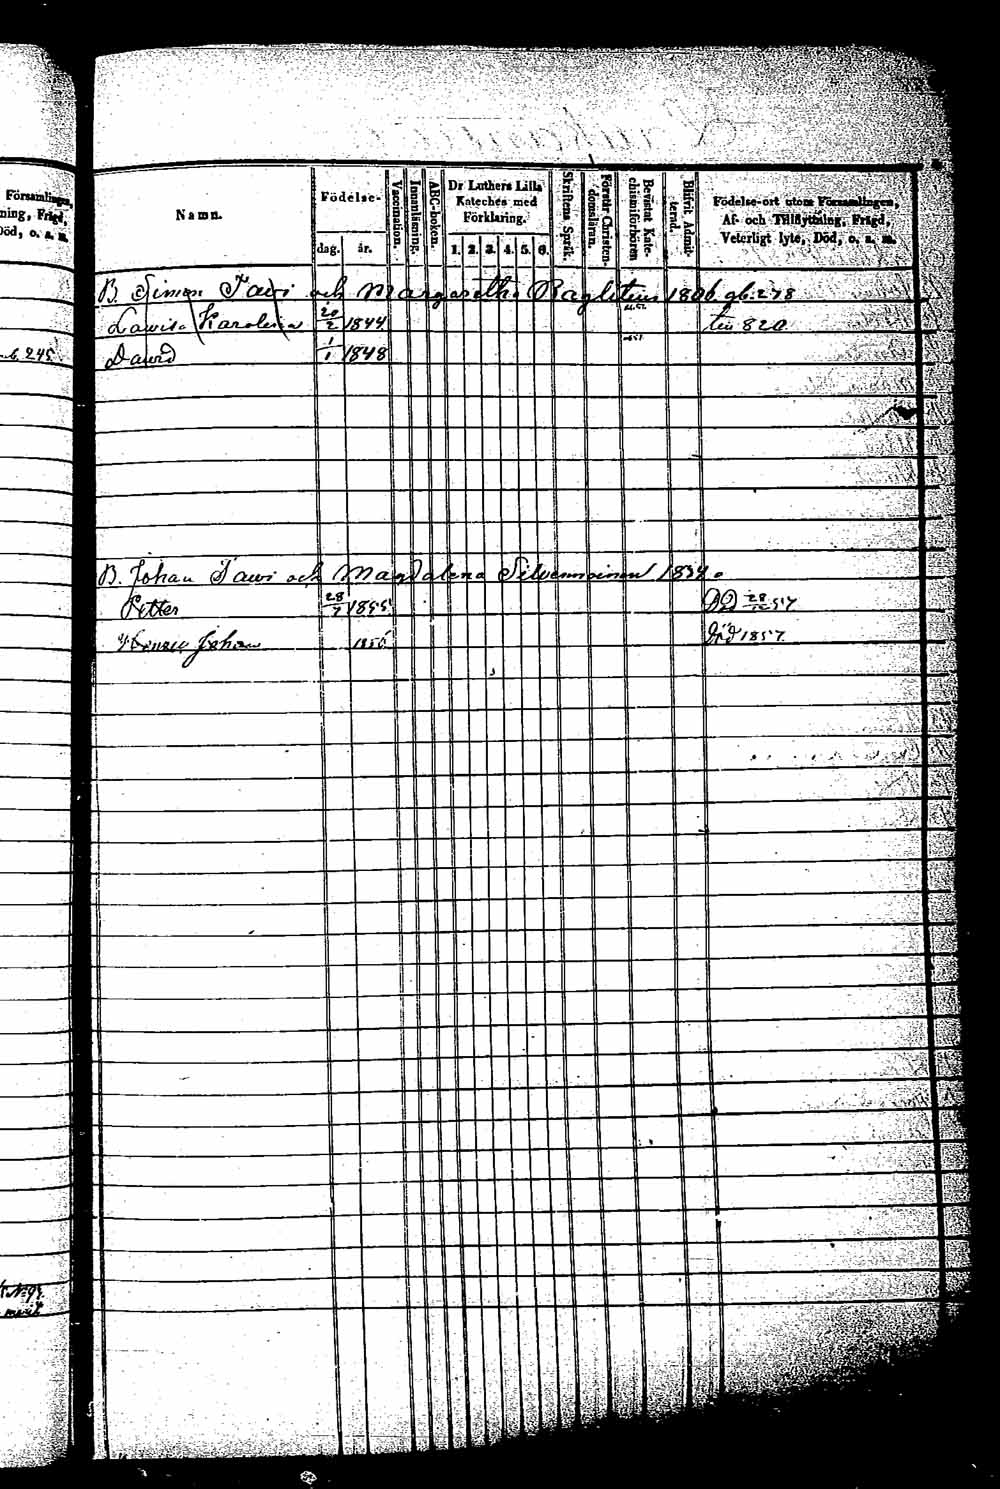 Församlingen,
ning, Frägd,
Död, o. s. m.
Namn.
Födelse-
dag. år.
Vaccination.
Innanläsning.
ABC-boken.
Dr Luthers Lilla
Kateches med
Förklaring.
1. 2. 3. 4. 5. 6.
Skriftens Språk.
Förstå Christen-
domsläran.
Bevistat Kate-
chismiförhören
Blifvit Admit-
terad.
Födelse-ort utom Församlingen,
Af- och Tillflyttning, Frägd,
Veterligt lyte, Död, o. s. m.
B. Simon Tawi och Margaretha 1806. gb: 278
Lawisa Karolina 20/2 1844
Dawid 1/1 1848
245.
B. Johan Tawi och Magdalena Silvennoinen 1834.
Petter 28/7 1855 57
Johan 1856 Död 1857